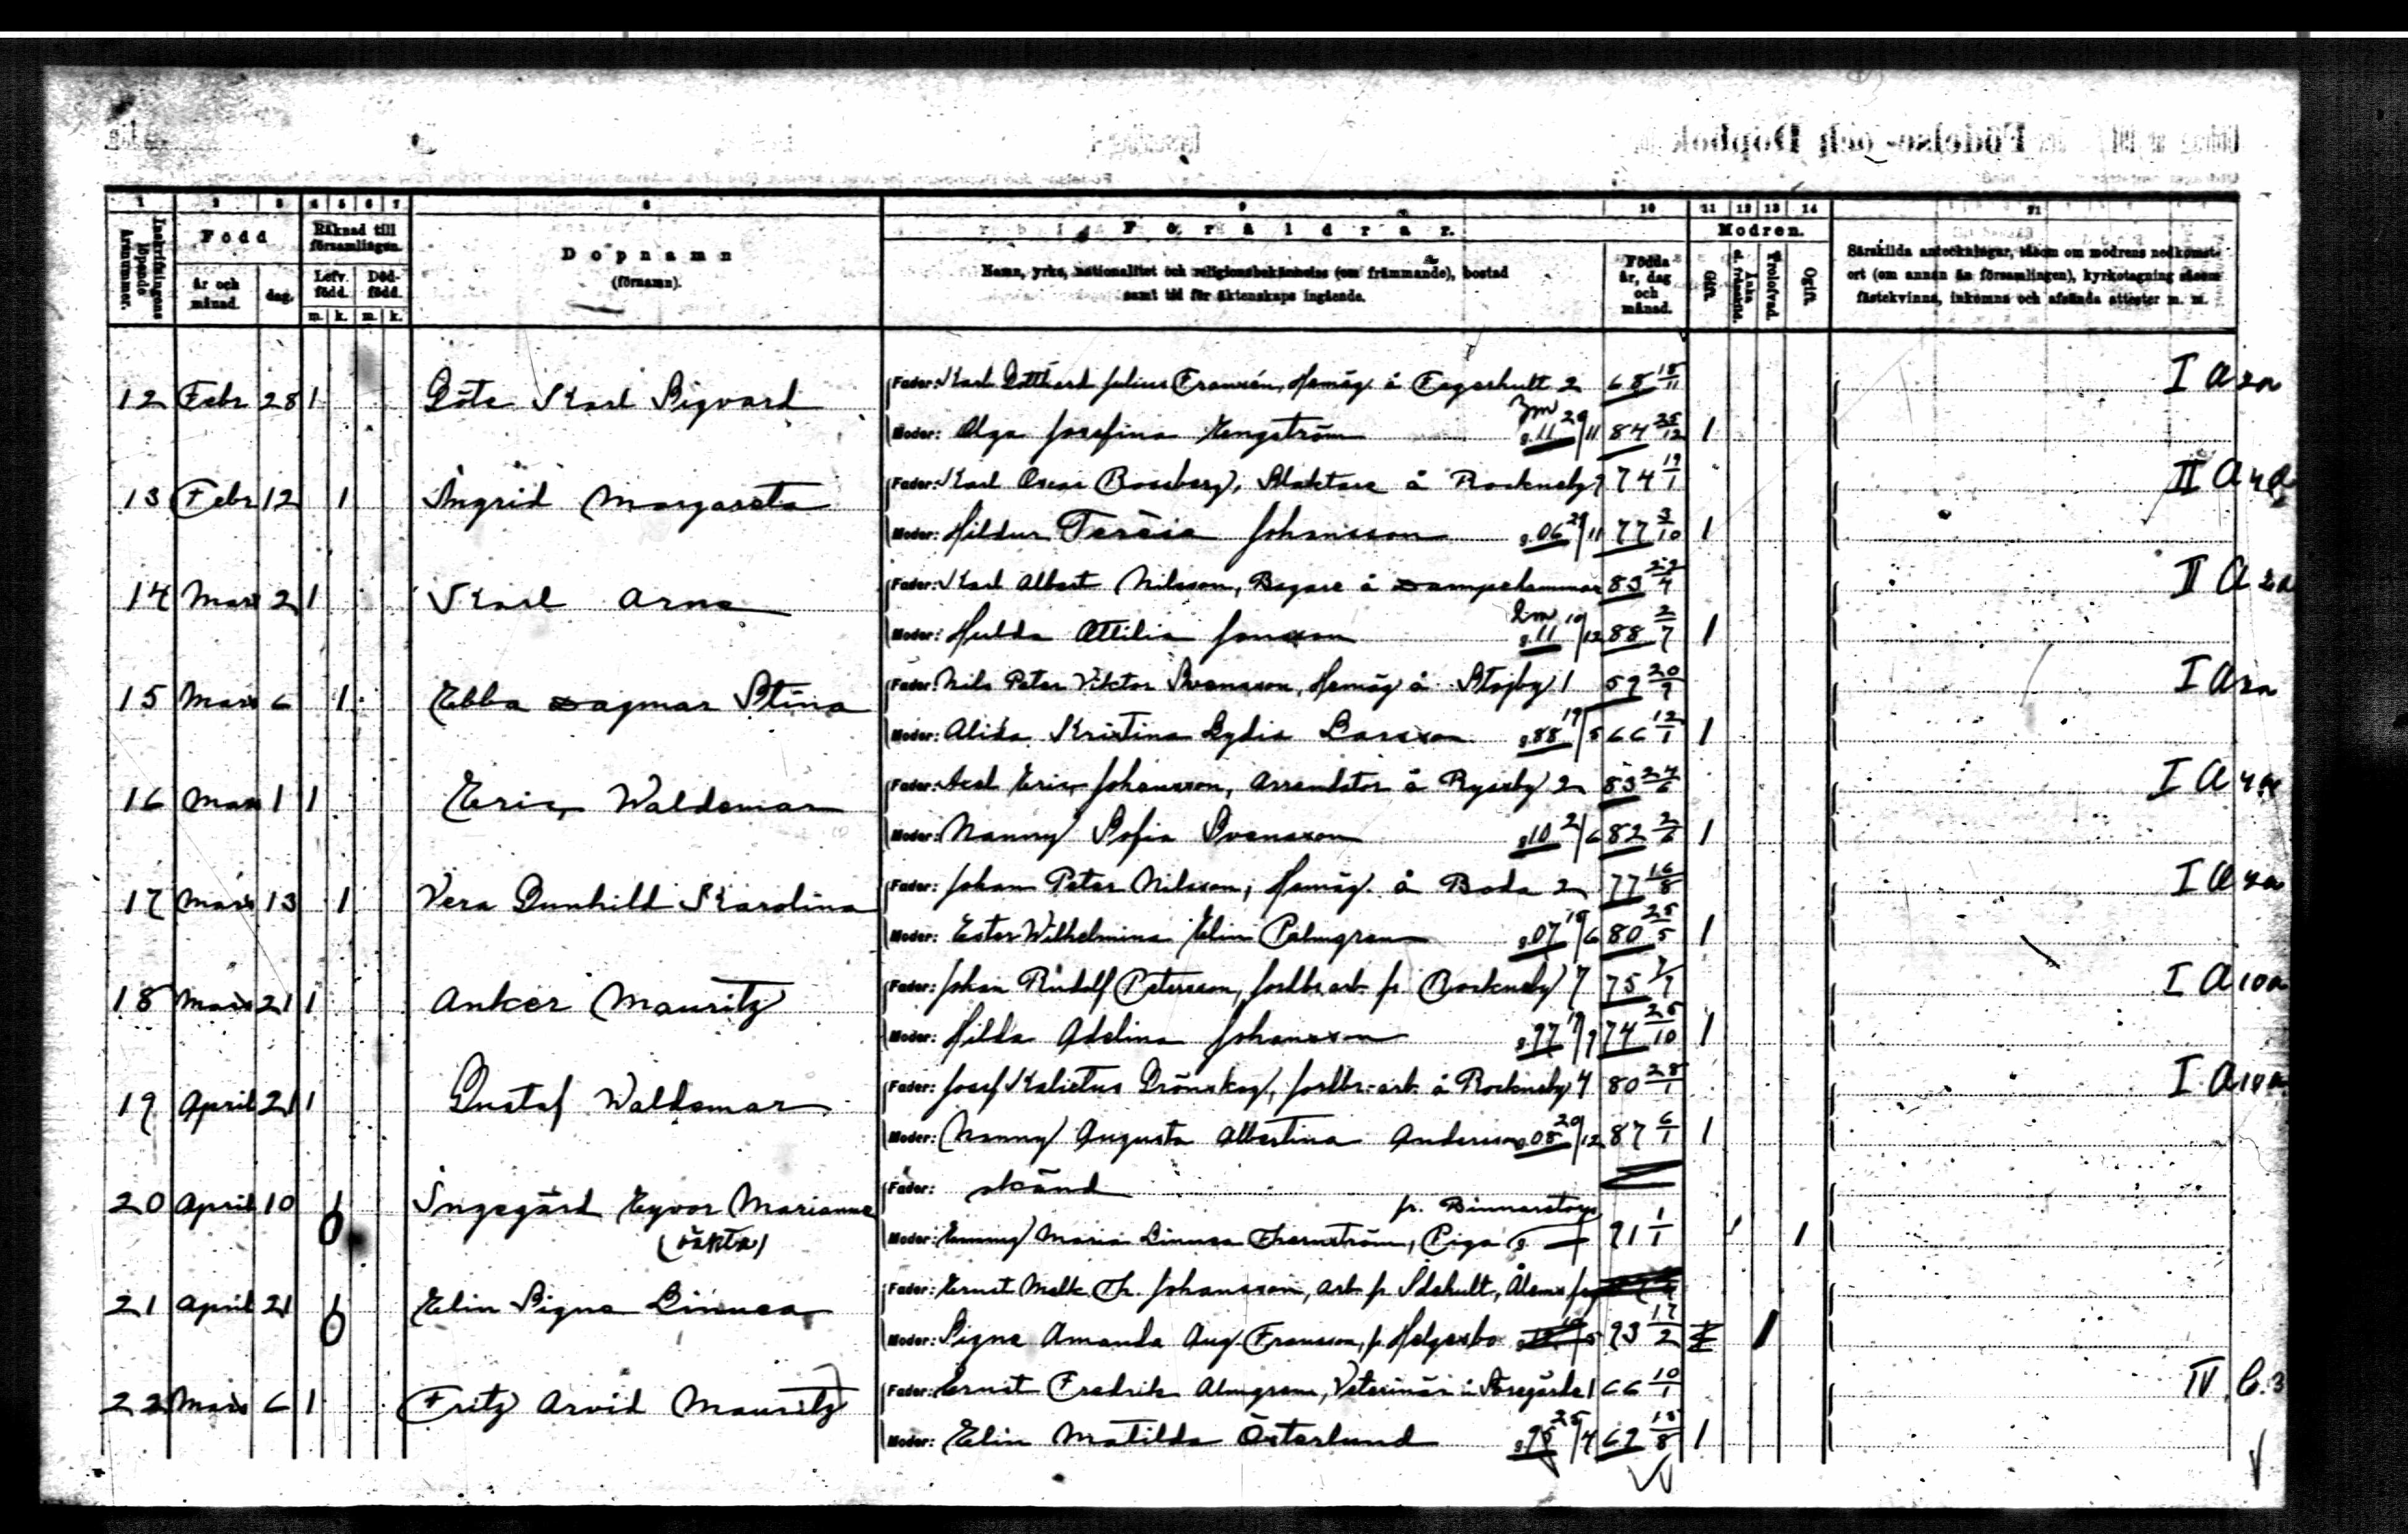 Födelse- och Dopbok
1 2 3 4 5 6 7 8 9 10 11 12 13 14 21
Inskrifningens löpende Årsnummer.
Född
Räknad till församlingen.
Dopnamn
(förnamn).
Föräldrar.
Namn, yrke, nationalitet och religionsbekännelse (om främmande), bostad
samt tid för äktenskaps ingående.
Födda år, dag och månad.
Modren.
Gift. Trolofvad. Ogift.
Särskilda anteckningar, såsom om modrens nedkomst-
ort (om annan än församlingen), kyrkotagning såsom
fästekvinna, inkomna och afsända attester m. m.
år och månad. dag.
Lefv. född. Död- född.
m. k. m. k.
12 Febr 28 1 Göte Karl Sigvard
Fader: Karl Gotthard Julius Franzén, Hemäg. å Fagerhult 2 68 18/11 I a 2a
Moder: Olga Josefina Engström g. 11 29/11 84 25/12 1
13 Febr 12 1 Ingrid Margareta
Fader: Karl Oscar Boseberg, Slaktare å Rockneby 7 74 19/1 II a 4a
Moder: Hildur Teresia Johansson g. 06 29/11 77 3/10 1
14 Mars 2 1 Karl Arne
Fader: Karl Albert Nilsson, Bagare å Dampehammar 83 22/4 II a 2a
Moder: Hulda Attilia Jonsson g. 11 10/12 88 2/7 1
15 Mars 6 1 Ebba Dagmar Stina
Fader: Nils Peter Viktor Svensson, Hemäg å Slagby 1 59 20/9 I a 2a
Moder: Alida Kristina Lydia Larsson g. 88 19/5 66 12/1 1
16 Mars 1 1 Eric Waldemar
Fader: Axel Eric Johansson, Arrendator å Ryssby 2 83 24/6 I a 4a
Moder: Nanny Sofia Svensson g. 10 2/6 82 2/6 1
17 Mars 13 1 Vera Gunhild Karolina
Fader: Johan Peter Nilsson, Hemäg. å Boda 2 77 16/8 I a 4a
Moder: Ester Wilhelmina Elin Palmgren g. 07 15/6 80 25/5 1
18 Mars 21 1 Anker Mauritz
Fader: Johan Rudolf Petersson, jordbr.arb. fr. Rockneby 7 75 7/7 I a 10a
Moder: Hilda Adelina Johansson g. 97 19/9 74 25/10 1
19 April 21 1 Gustaf Waldemar
Fader: Josef Kalixtus Grönskog, jordbr.-arb. å Rockneby 4 80 28/1 I a 10a
Moder: Nanny Augusta Albertina Andersson g. 08 20/12 87 6/1 1
20 April 10 1 Ingegärd Eyvor Marianne
(oäkta)
Fader: okänd
fr. Binnaretorp
Moder: Emmy Maria Linnea Thernström, Piga g. — 91 1/1 1 1
21 April 21 1 Elin Signe Linnea
Fader: Ernst Melk. Th. Johansson, arb. fr. Idehult, Ålems
Moder: Signe Amanda Aug. Fransson, fr. Helgesbo 93 17/2 1
22 Mars 6 1 Fritz Arvid Mauritz
Fader: Ernst Fredrik Almgren, Veterinär i Storegärde 1 66 10/1 IV b. 3
Moder: Elin Matilda Österlund g. 95 25/4 69 18/8 1